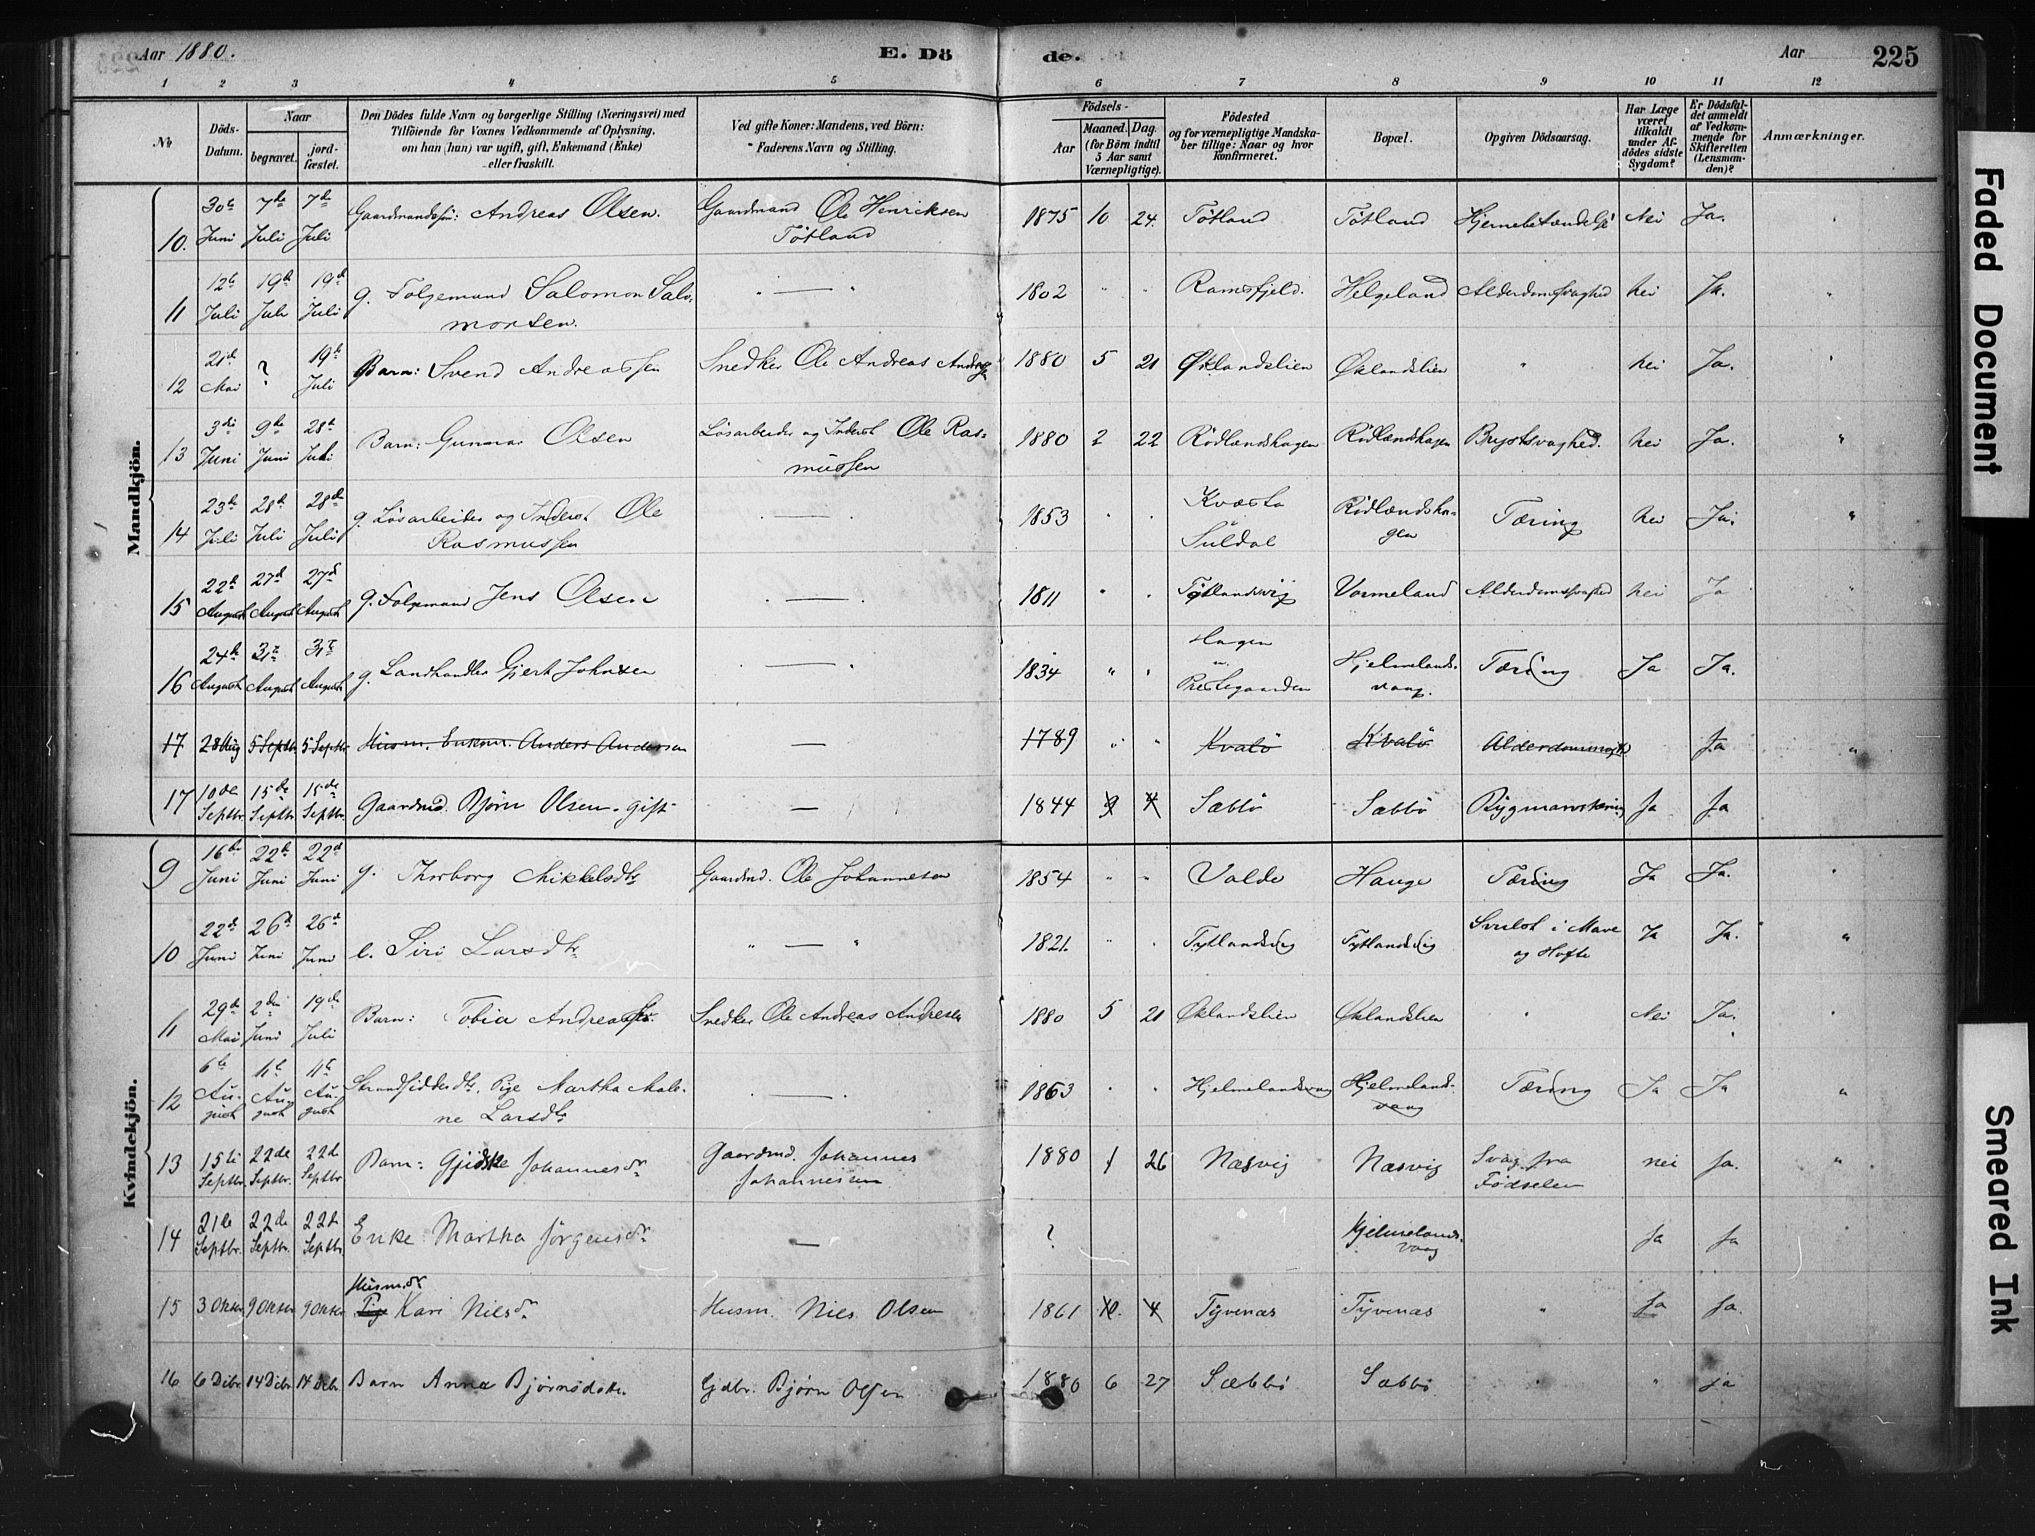 Aar 1880.
E. Dö
de.
Aar
225
1 2 3 4 5 6 7 8 9 10 11 12
No
Döds-Datum.
Naar
begravet.
jordfæstet.
Den Dödes fulde Navn og borgerlige Stilling (Næringsvei) med
Tilföiende for Voxnes Vedkommende af Oplysning,
om han (hun) var ugift, gift, Enkemand (Enke)
eller fraskilt.
Ved gifte Koner: Mandens, ved Börn:
Faderens Navn og Stilling.
Födsels-
Aar
Maaned. Dag.
(for Börn indtil
5 Aar samt
Værnepligtige).
Födested
og for værnepligtige Mandskaber tillige: Naar og hvor
konfirmeret.
Bopæl.
Opgiven Dödsaarsag.
Har Læge
været
tilkaldt
under Afdödes sidste
Sygdom?
Er Dödsfaldet anmeldt
af Vedkommende for
Skifteretten
(Lensmanden)?
Anmærkninger.
Mandkjön.
10. 30te Juni 7de Juli 7de Juli Gaardmandssøn: Andreas Olsen. Gaardmand Ole Henriksen Tøtland 1875 10 24. Tøtland Tøtland Hjernebetændelse Nei Ja.
11 12te Juli 19de Juli 19de Juli g. Folgemand Salomon Salomonsen. — 1802 " " Ramsfjeld. Helgeland Alderdomssvaghed nei Ja. "
12 21de Mai ? 19de Juli Barn: Svend Andreassen Snedker Ole Andreas Andreassen 1880 5 21 Øklandslien Øklandslien " nei Ja. "
13 3die Juni 9de Juni 28de Juli Barn: Gunnar Olsen Løsarbeider og Inderst Ole Rasmussen 1880 2 22 Rødlandshagen Rødlandshagen Brystsvaghed. nei Ja. "
14 23de Juli 28de Juli 28de Juli g. Løsarbeider og Inderst Ole Rasmussen — 1853 " " Kvæsta Suldal Rødlandshagen Tæring nei Ja. "
15 22de August 27de August 27de August g. Folgemand Jens Olsen — 1811 " " Tytlandsvig Vormeland Alderdomssvaghed nei Ja "
16 24de August 31te August 31te August g. Landhandler Gjert Johnsen — 1834 " " Hagen u. Prestegaarden Hjelmelandsvaag. Tæring Ja Ja. "
17 28 Aug 5 Septbr 5 Septbr Husm. Enkem. Anders Andersen — 1789 " " Kvalø Kvalø Ja "
17 10de Septbr. 15de Septbr. 15de Septbr. Gaardmd. Bjørn Olsen. gift — 1844 9 4 Sæbbø Sæbbø Rygmarvstæring Ja Ja
Kvindekjön.
9 16de Juni 22de Juni 22de Juni g. Thorborg Mikkelsdtr Gaardmd. Ole Johannesen 1854 " " Valde Hauge Tæring Ja Ja. "
10 22de Juni 26de Juni 26de Juni e. Siri Larsdtr " — " 1821. " " Tytlandsvig Tytlandsvig Svulst i Mave og Hofte Ja Ja. "
11 29de Mai 2den Juni 19de Juli Barn: Tobia Andreasdtr. Snedker Ole Andreas Andresen 1880 5 21 Øklandslien Øklandslien " Nei Ja. "
12 6te August 11te August 11te August Strandsidderdtr. Pige Martha Malene Larsdtr — 1863 " " Hjelmelandsvaag Hjelmelandsvaag Tæring Ja Ja "
13 15de Septbr. 22de Septbr. 22de Septbr. Barn: Gjidske Johannesdr. Gaardmd. Johannes Johannessen 1880 1 26 Næsvig Næsvig Svag fra Fødselen nei Ja. "
14 21de Septbr. 22de Septbr. 22de Septbr. Enke Martha Jørgensdr. — ? Hjelmelandsvaag Ja Ja "
15 3 Oktbr 9 Oktbr 9 Oktbr Husm.dr. Pige Kari Nielsdr. Husm. Niels Olsen 1861 10. 4 Tyvenæs Tyvenæs " Ja Ja. "
16 6 Dcbr. 14 Dcbr. 14 Dcbr. Barn Anna Bjørnsdatter. Gdbr. Bjørn Olsen 1880 6 27 Sæbbø Sæbbø " " ja
Faded Document
Smeared Ink